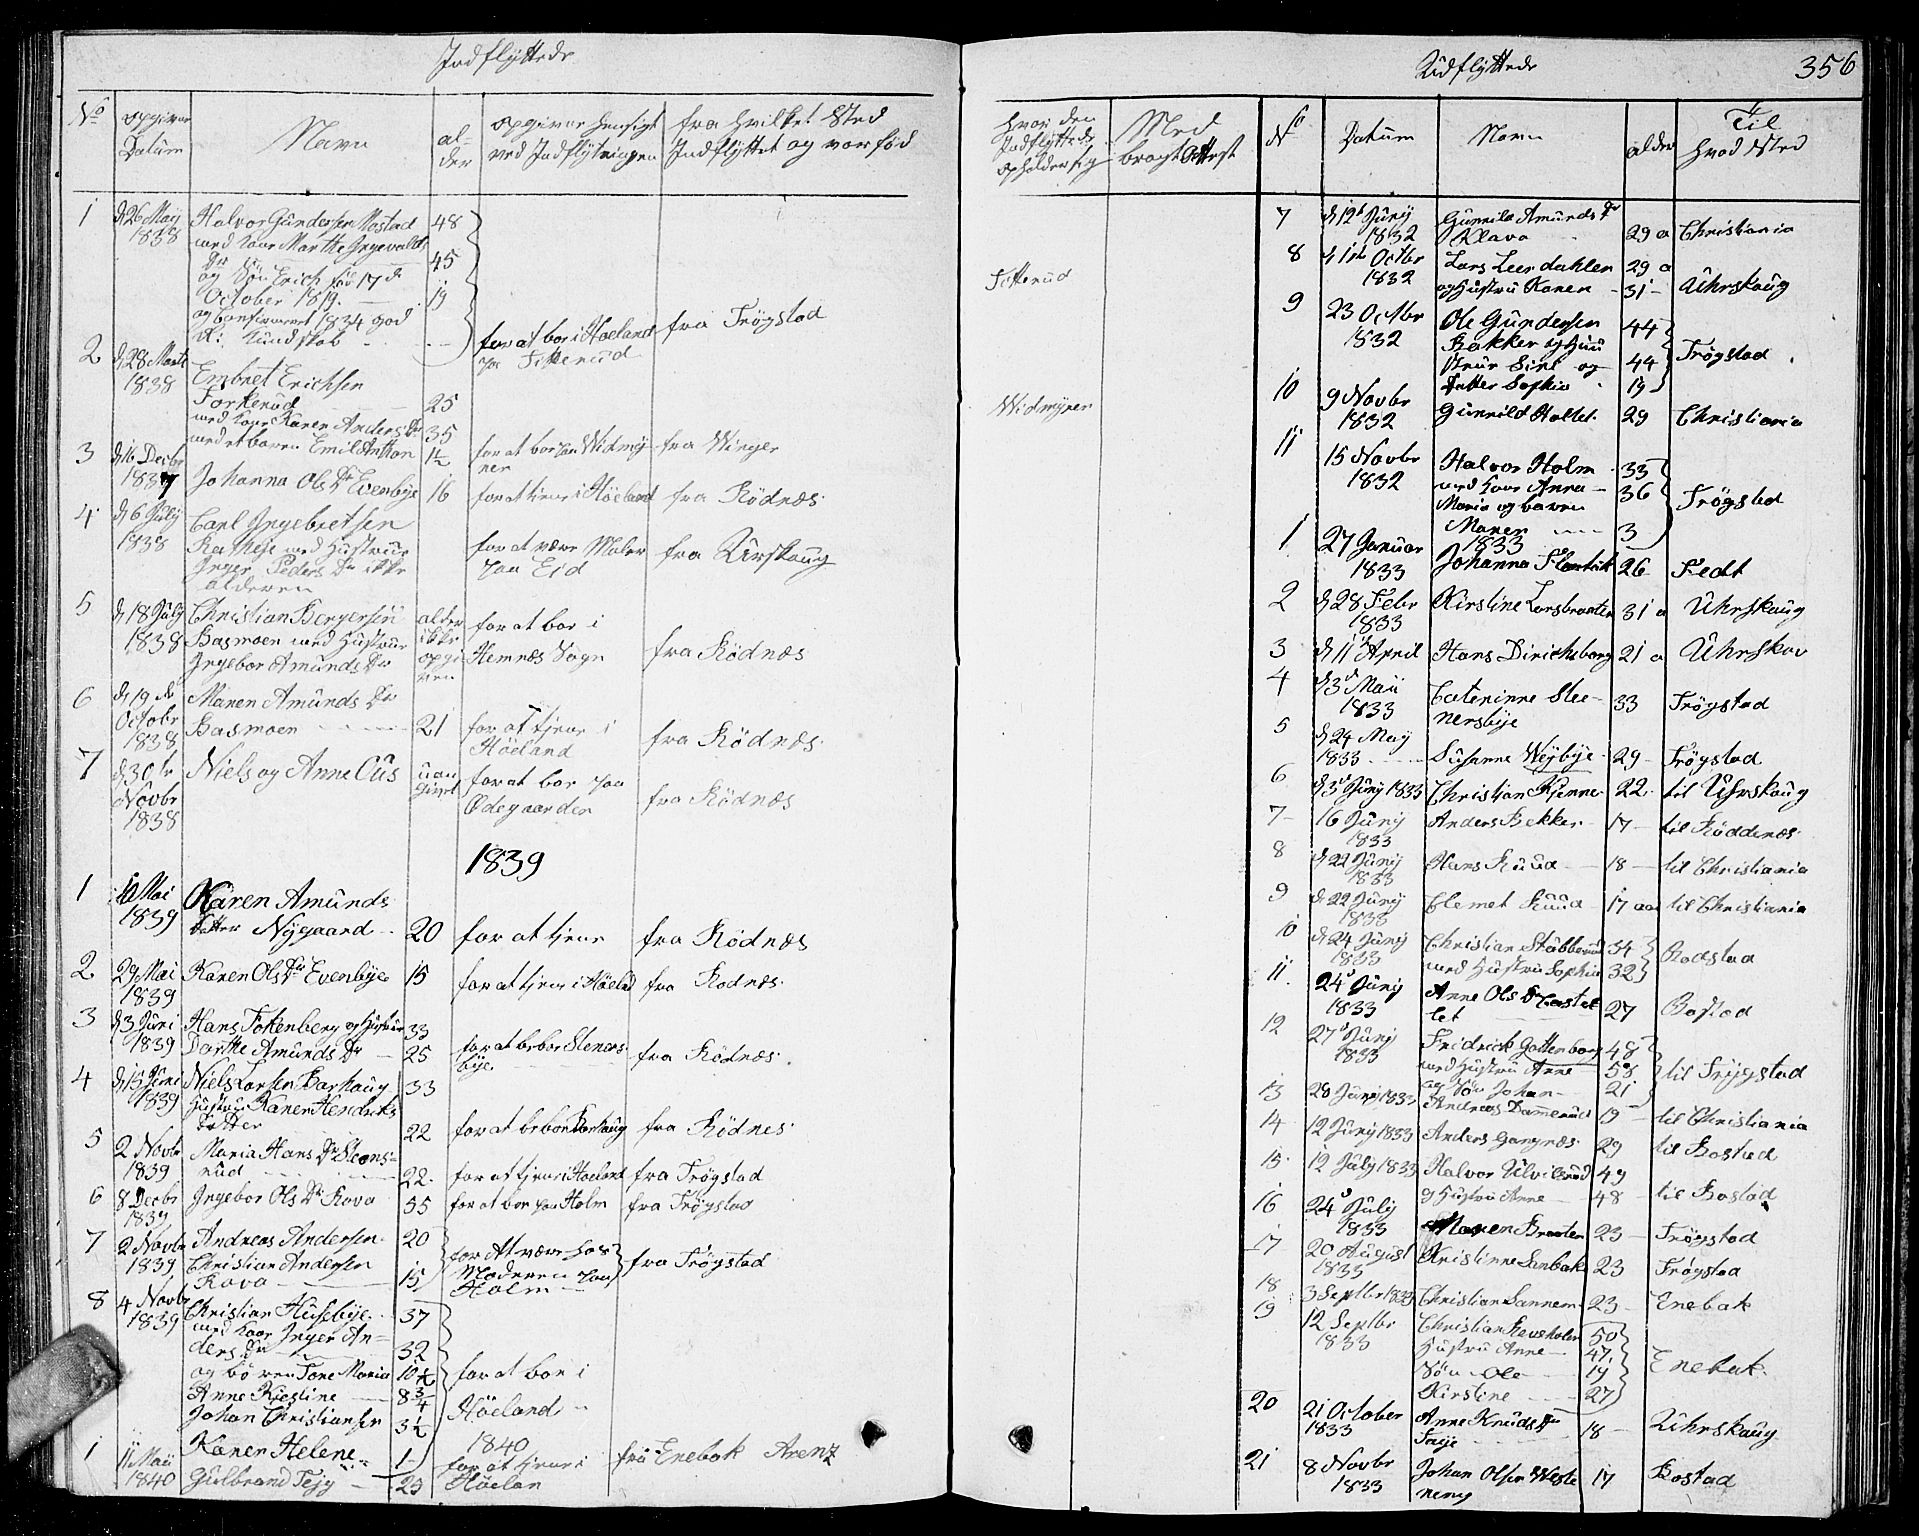 Indflyttede
No opgiver Datum Navn al- der opgiver hensigt ved Indflytningen fra hvilket Sted Indflyttet og var fød
1 d 26 Maij 1838 Halvor Gundersen Mostad 48
med Kone Marthe Ingevalds
Dr 45
og Søn Erich fød 17de
October 1819. 19
og Confirmeret 1834 god
Kundskab for at boe i Høeland paa Fitterud fra Trøgstad
2 d 28 Marts 1838 Embret Erichsen
Forkerud 25
med Kone Karen Anders Dr 35
med et barn Emil Anthon 1½ for at boe paa Widmyrer fra Winger
3 d 16 Decbr 1837 Johanna Ols Dr Evenbye 16 for at tjene i Høeland fra Rødnæs
4 d 6 July 1838 Carl Ingebretsen
med Hustrue
Inger Peders Dr ikke
alderen for at være Maler paa Eid fra Urskoug
5 d 18 July 1838 Christian Bergersen
Basmoen med Hustrue
Ingebor Amunds Dr alder ikke opgiven for at boe i Hemnæs Sogn fra Rødnæs
6 d 19de Octobr 1838 Maren Amunds Dr
Basmoen 21 for at tjene i Høeland fra Rødnæs
7 d 30te Novbr 1838 Niels og Anne Ous for at boe paa Ødegaarden fra Rødnæs
1839
1 10 Mai 1839 Karen Amunds
Datter Nygaard 20 for at tjene fra Rødnæs
2 29 Mai 1839 Karen Ols Dr Evenbye 15 for at tjene i Høeland fra Rødnæs
3 d 3 Juni 1839 Hans Fokenberg og Hustrue 33
Dorthe Amunds Dr 25 for at beboe Stenersbye fra Rødnæs
4 d 15 Juni 1839 Niels Larsen Barhaug 33
Hustru Karen Hendriks
Datter 22 for at beboe Barhaug fra Rødnes
5 2 Novbr 1839 Maria Hans Dr Steens-
rud 22 for at tjene i Høeland fra Trøgstad
6 8 Decbr 1839 Ingebor Ols Dr Kova 55 for at boe paa Holm fra Trøgstad
7 2 Novbr 1839 Andreas Andersen 20
Christian Andersen
Kova 15 for at være hos Moderen paa Holm fra Trøgstad
8 4 Novbr 1839 Christian Husebye 37
med Kone Inger An-
ders Dr 32
og børn Tone Maria 10½
Anne Kirstine 8¾
Johan Christiansen 3½
Karen Helene 1 for at boe i Høeland
1840
1 11 Maii 1840 Gulbrand Tejg 23 for at tjene i Høelan fra Enebak Arenz
Udflyttede 356
hvor den Indflyttede opholder sig Med bragt Attest No Datum Navn alder Til hvad Sted
Fitterud
Widmyrer
7 d 12t Juny 1832 Gunnild Amunds Dr
Klava 29 a Christiania
8 Octbr 1832 Lars Leerdahlen 29 a
og Hustru Karen 31 Uhrskoug
9 23 Octbr 1832 Ole Gundersen 44
Bakker og Huu
strue Siri og 44
Datter Sophia 19 Trøgstad
10 9 Novbr 1832 Gunnild Holtet 29 Christiania
11 15 Novbr 1832 Halvor Holm 33
med Kone Anna 36
Maria og barn
Maren 3 Trøgstad
1833
1 27 Januar 1833 Johanna 26 Fedt
2 d 28 Febr 1833 Kirstine Larsbraaten 31 a Uhrskoug
3 d 11t April Hans Dirichsborg 21 a Uhrskov
4 d 3d Maii 1833 Caterinne Stee-
nersbye 33 Trøgstad
5 d 24 May 1833 Susanne Weybye 29 Trøgstad
6 d 3d Juny 1833 Christian Kjenne 22 til Uhrskoug
7 16 Juny 1833 Anders Bekker 17 til Røddenæs
8 d 22 Junij 1833 Hans Ruud 18 til Christiania
9 d 22 Junij 1833 Clemet Ruud 17 aar til Christiania
10 d 24 Junij 1833 Christian Stubberud 34
med Hustru Sophia 32 Rodstad
11 24d Junij 1833 Anne Ols Dr Castel
let 27 Bastad
12 27d Junij 1833 Fridrick Gottenborg 48
med Hustru Anne 58
og Søn Johan 21 til Trygstad
13 28 Juny 1833 Andreas Dammerud 19 til Christiania
14 12 Juny 1833 Anders Gangnæs 29 til Bastad
15 12 July 1833 Halvor Ulvilsrud 49
og Hustru Anne 48 til Bastad
16 24d July 1833 Maren Braaten 23 Trøgstad
17 20 August 1833 Kristinne Lunbak 23 Trøgstad
18 3 Septbr 1833 Christian Sannem 23 Enebak
19 12 Septbr 1833 Christian Revsholen 50
Hustru Anne 47
Søn Ole 19
Kirstine 27 Enebak
20 21 October 1833 Anne Knuds Dr
Foye 18 Uhrskoug
21 8 Novbr 1833 Johan Olsen Weste
neng 17 Bastad